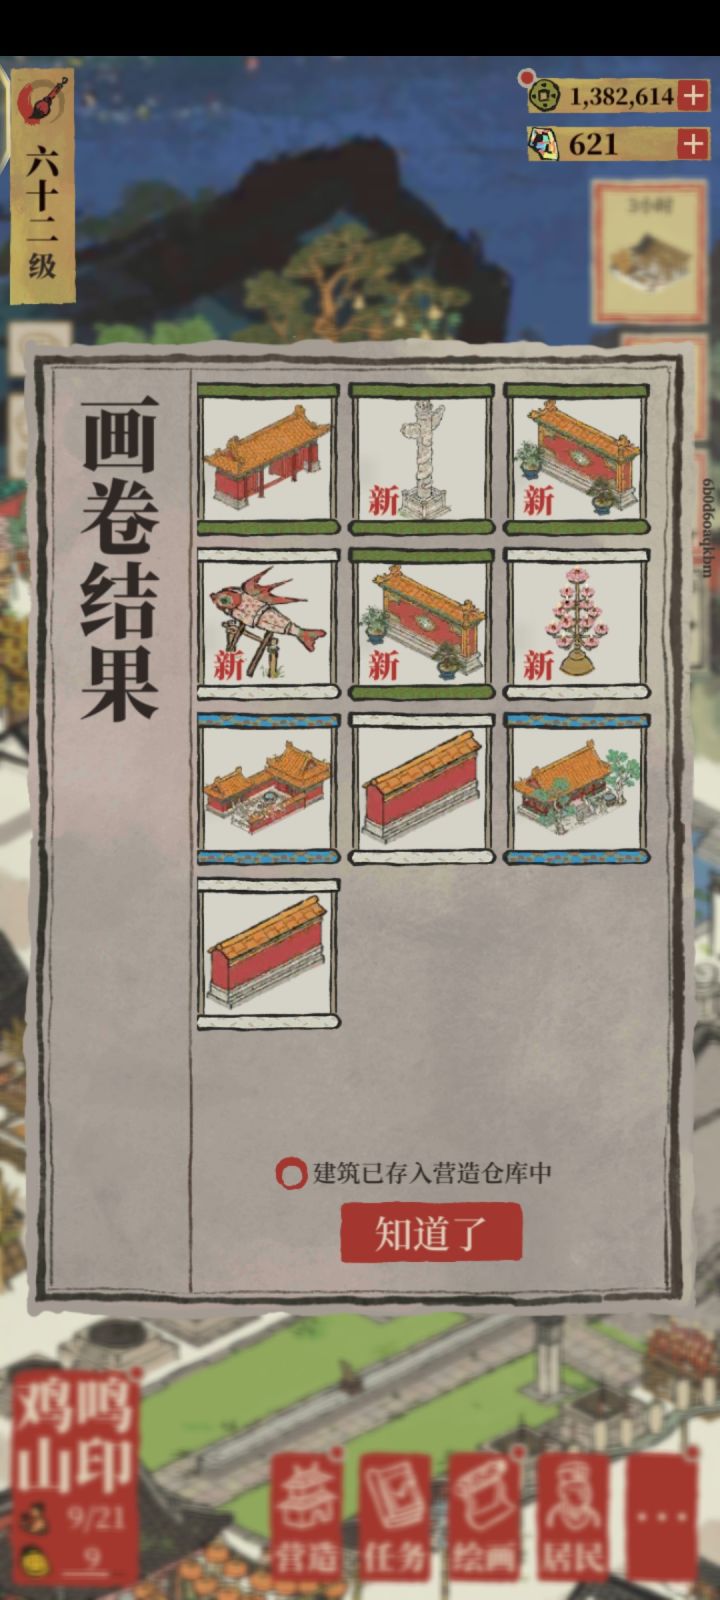 六十二级
1,382,614
621
3小时
6b0d6oaqkbm
画卷结果
新
新
新
新
新
建筑已存入营造仓库中
知道了
鸡鸣
山印
9/21
9
营造
任务
绘画
居民